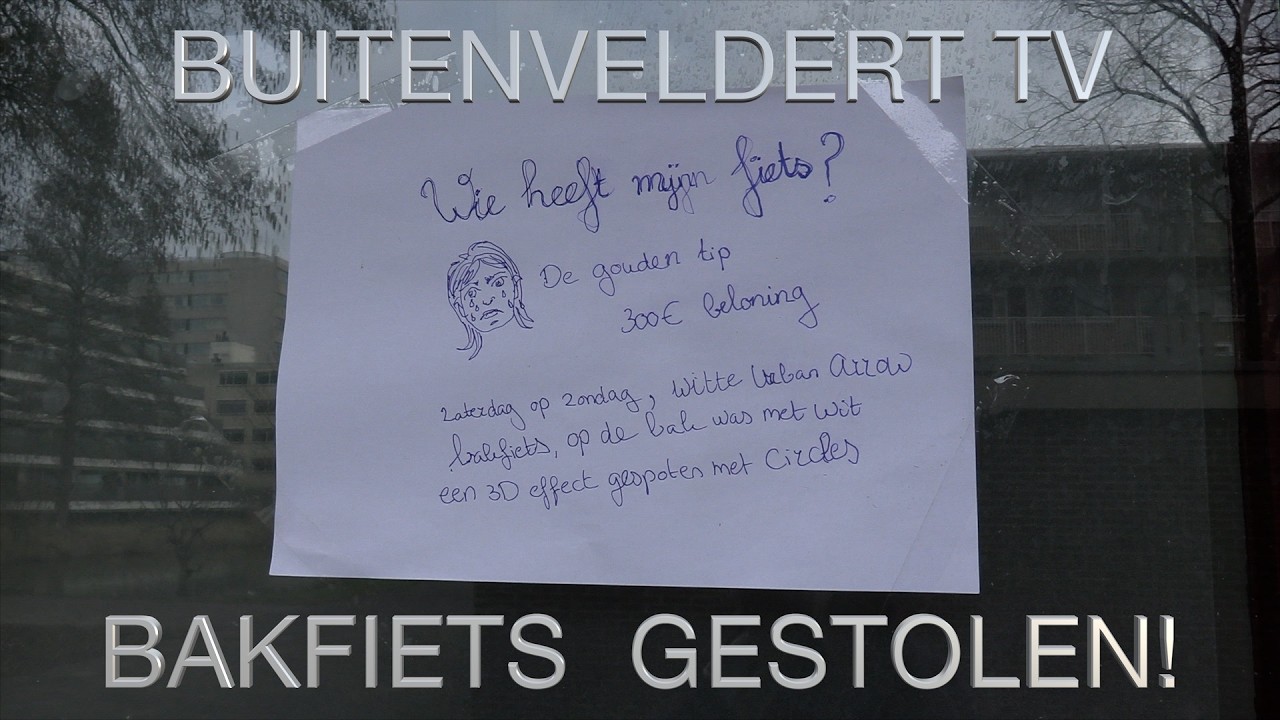 BUITENVELDERT TV
Wie heeft mijn fiets?
De gouden tip
300€ beloning
zaterdag op zondag, witte Urban Arrow
bakfiets, op de bak was met wit
een 3D effect gespoten met Circles
BAKFIETS GESTOLEN!